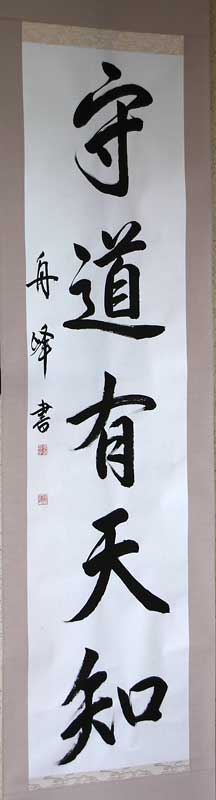 守道有天知
舟峰書